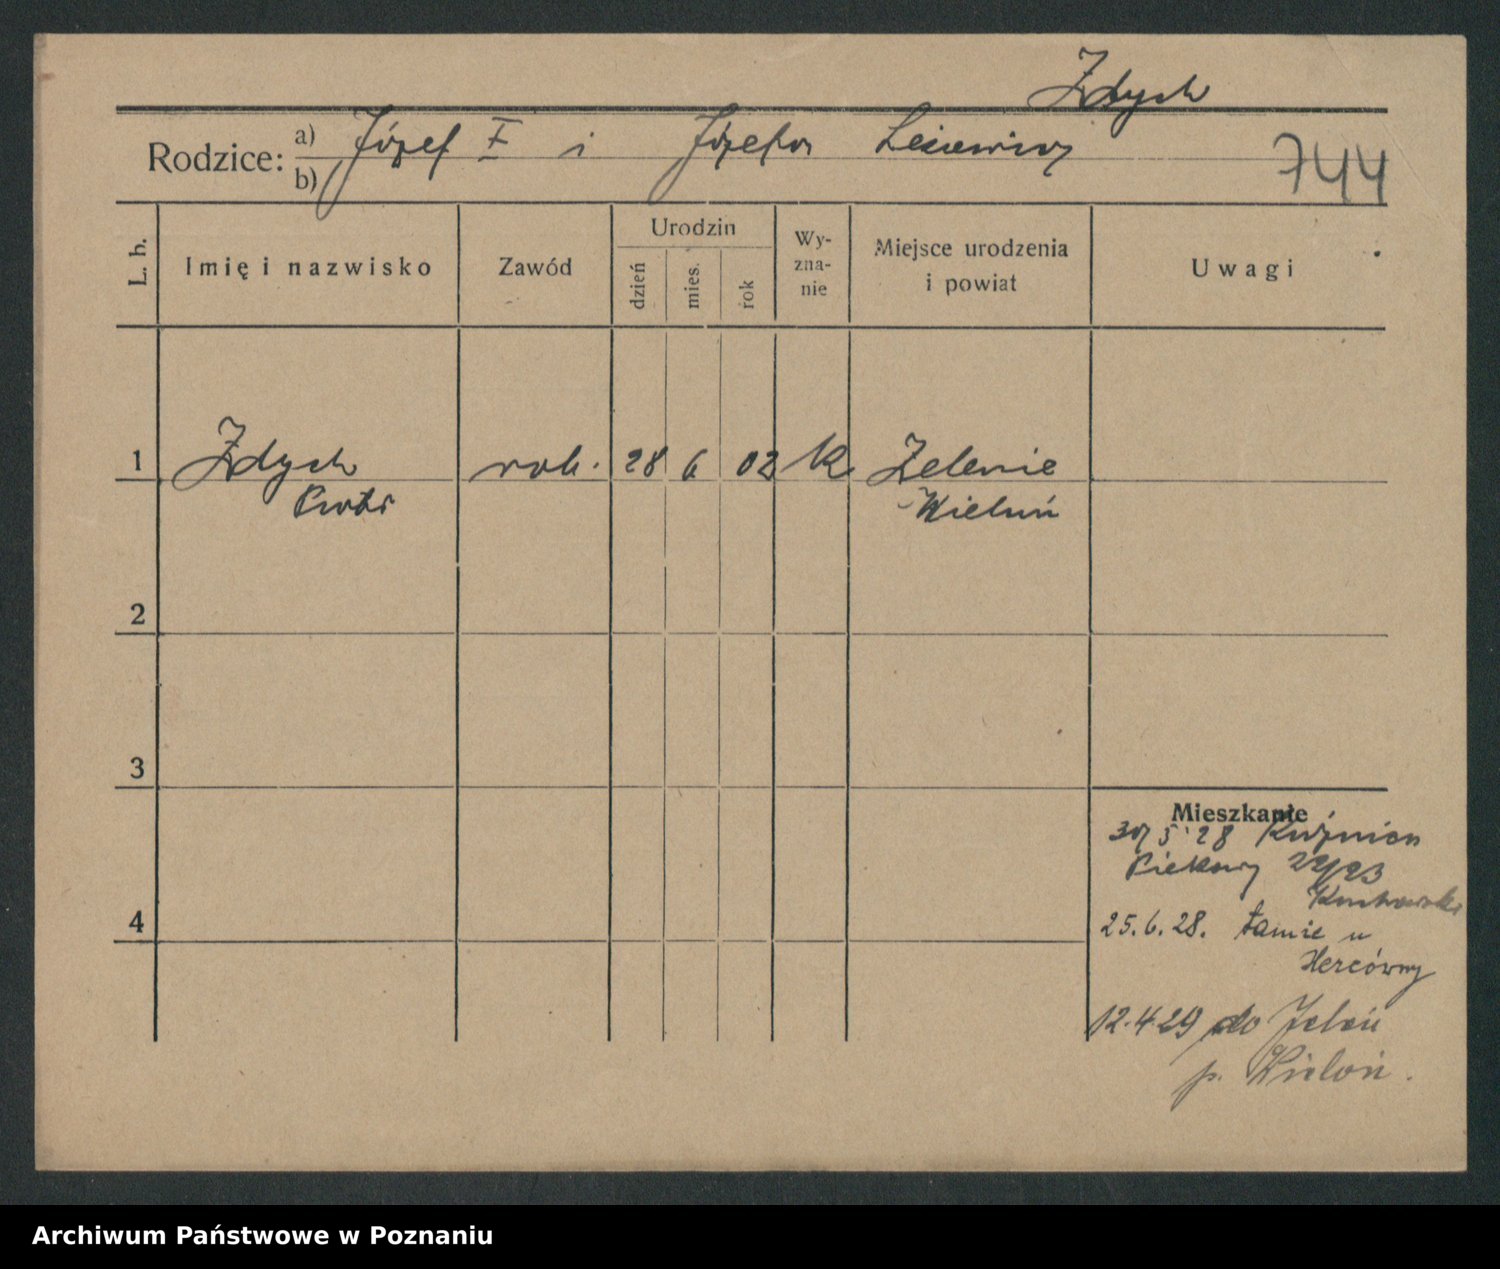 Zdych
Rodzice: a) Józef I i Józefa
b)
744
L. b.
Imię i nazwisko
Zawód
Urodzin
dzień
mies.
rok
Wy-
zna-
nie
Miejsce urodzenia
i powiat
Uwagi
1 Zdych rob. 28 6 02 K
Piotr Wieluń
2
3
Mieszkanie
30/5 28 Kuźnica
Piekary 22/23
4
25.6.28. u
Hercówny
12.4 29 do
p. Wieluń.
Archiwum Państwowe w Poznaniu